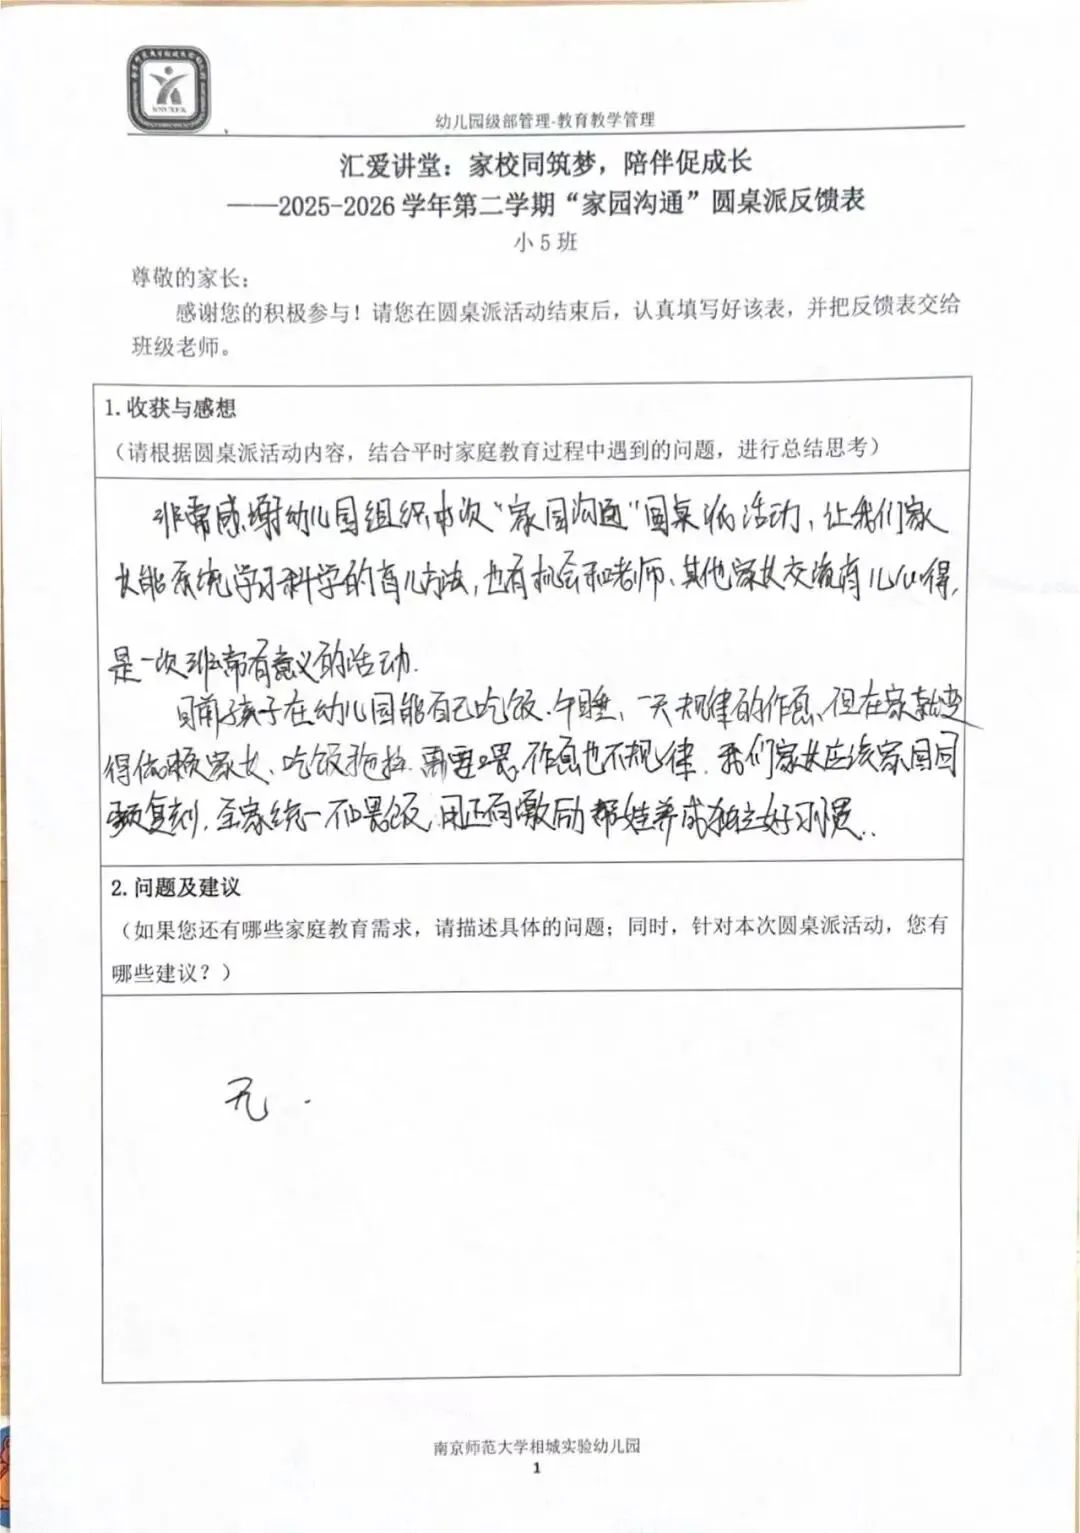 幼儿园级部管理-教育教学管理
汇爱讲堂：家校同筑梦，陪伴促成长
——2025-2026 学年第二学期“家园沟通”圆桌派反馈表
小 5 班
尊敬的家长：
感谢您的积极参与！请您在圆桌派活动结束后，认真填写好该表，并把反馈表交给
班级老师。
1. 收获与感想
（请根据圆桌派活动内容，结合平时家庭教育过程中遇到的问题，进行总结思考）
非常感谢幼儿园组织本次“家园沟通”圆桌派活动，让我们家
长能系统学习科学的育儿方法，也有机会和老师、其他家长交流育儿心得，
是一次非常有意义的活动.
目前孩子在幼儿园能自己吃饭.午睡、一天规律的作息，但在家就变
得依赖家长、吃饭拖拉 需要喂 作息也不规律. 我们家长应该家园同
频复刻，全家统一不喂饭，用正面激励帮娃养成独立好习惯..
2. 问题及建议
（如果您还有哪些家庭教育需求，请描述具体的问题；同时，针对本次圆桌派活动，您有
哪些建议？）
无.
南京师范大学相城实验幼儿园
1